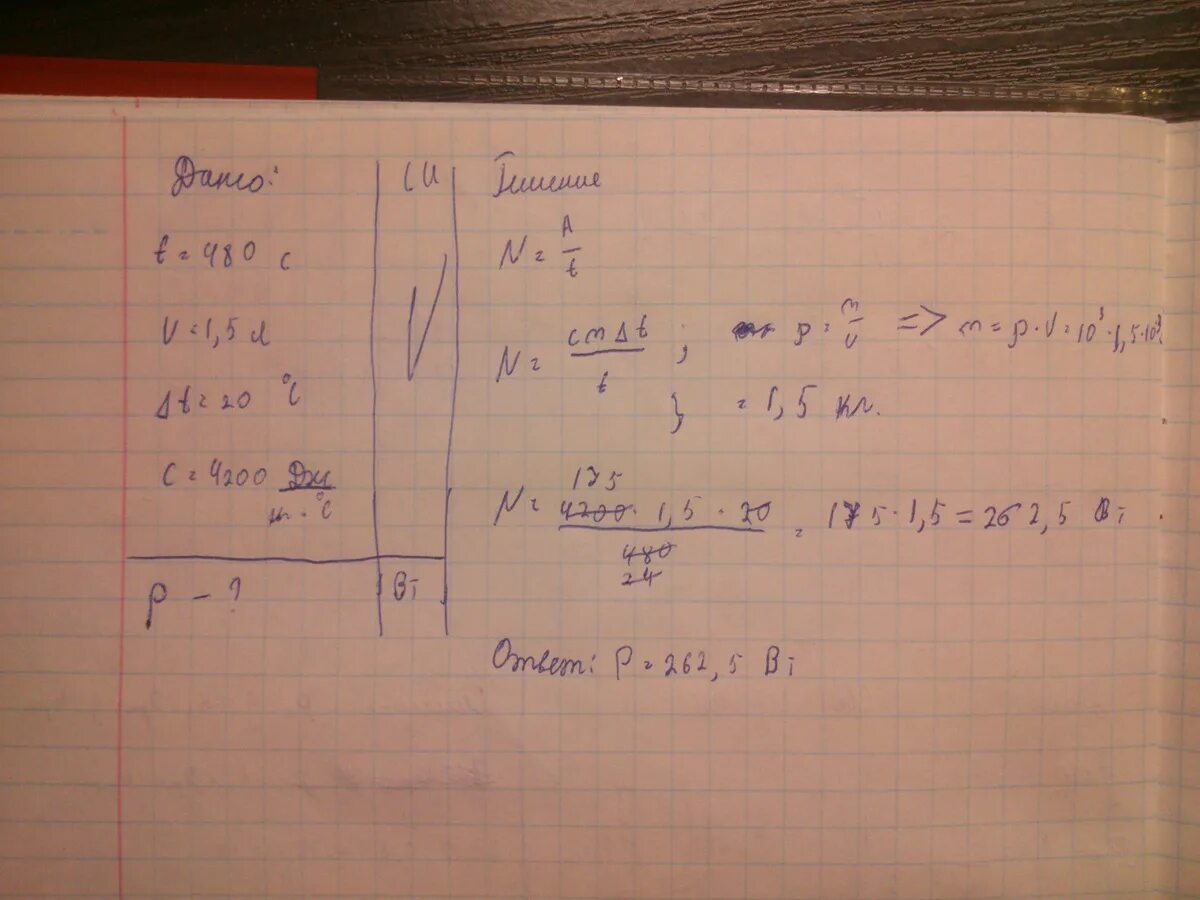 Дано:
СИ
t = 480 с
V = 1,5 л
Δt = 20 °C
C = 4200 Дж
кг · °C
P - ?
Вт
Решение
N = A
t
N = cmΔt
t
;
ρ = m
V
=> m = ρ · V = 10³ · 1,5 · 10
= 1,5 кг.
175
N = 4200 · 1,5 · 20
480
24
= 175 · 1,5 = 262,5 Вт
Ответ: P = 262,5 Вт